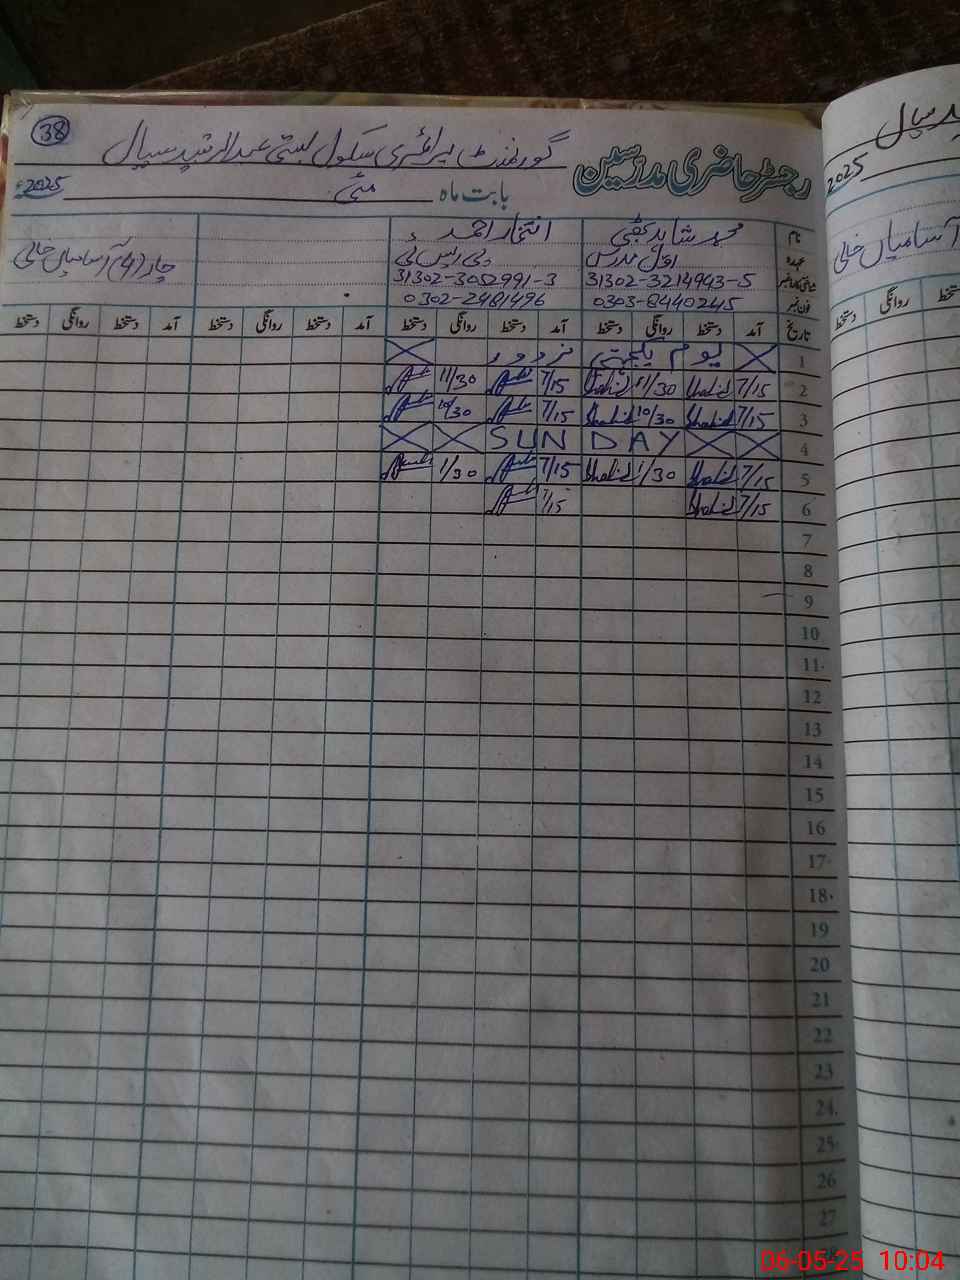 38
گورنمنٹ پرائمری سکول بستی عبدالرشید سیال
رجسٹر حاضری مدرسین
بابت ماہ مئی 2025ء
نام محمد شاہد بھٹی انتظار احمد
عہدہ اول مدرس پی ایس ٹی چار (4) آسامیاں خالی
شناختی کارڈ نمبر 31302-3214943-5 31302-3052991-3
فون نمبر 0303-8440245 0302-2481496
تاریخ آمد دستخط روانگی دستخط آمد دستخط روانگی دستخط آمد دستخط روانگی دستخط آمد دستخط روانگی دستخط
1 یوم یکجہتی مزدور
2 7/15 Shahid 11/30 Shahid 7/15 11/30
3 7/15 Shahid 10/30 Shahid 7/15 10/30
4 SUN DAY
5 7/15 Shahid 1/30 Shahid 7/15 1/30
6 7/15 Shahid 7/15
7
8
9
10
11
12
13
14
15
16
17
18
19
20
21
22
23
24
25
26
27
سیال
2025
آسامیاں خالی
روانگی دستخط
06-05-25 10:04